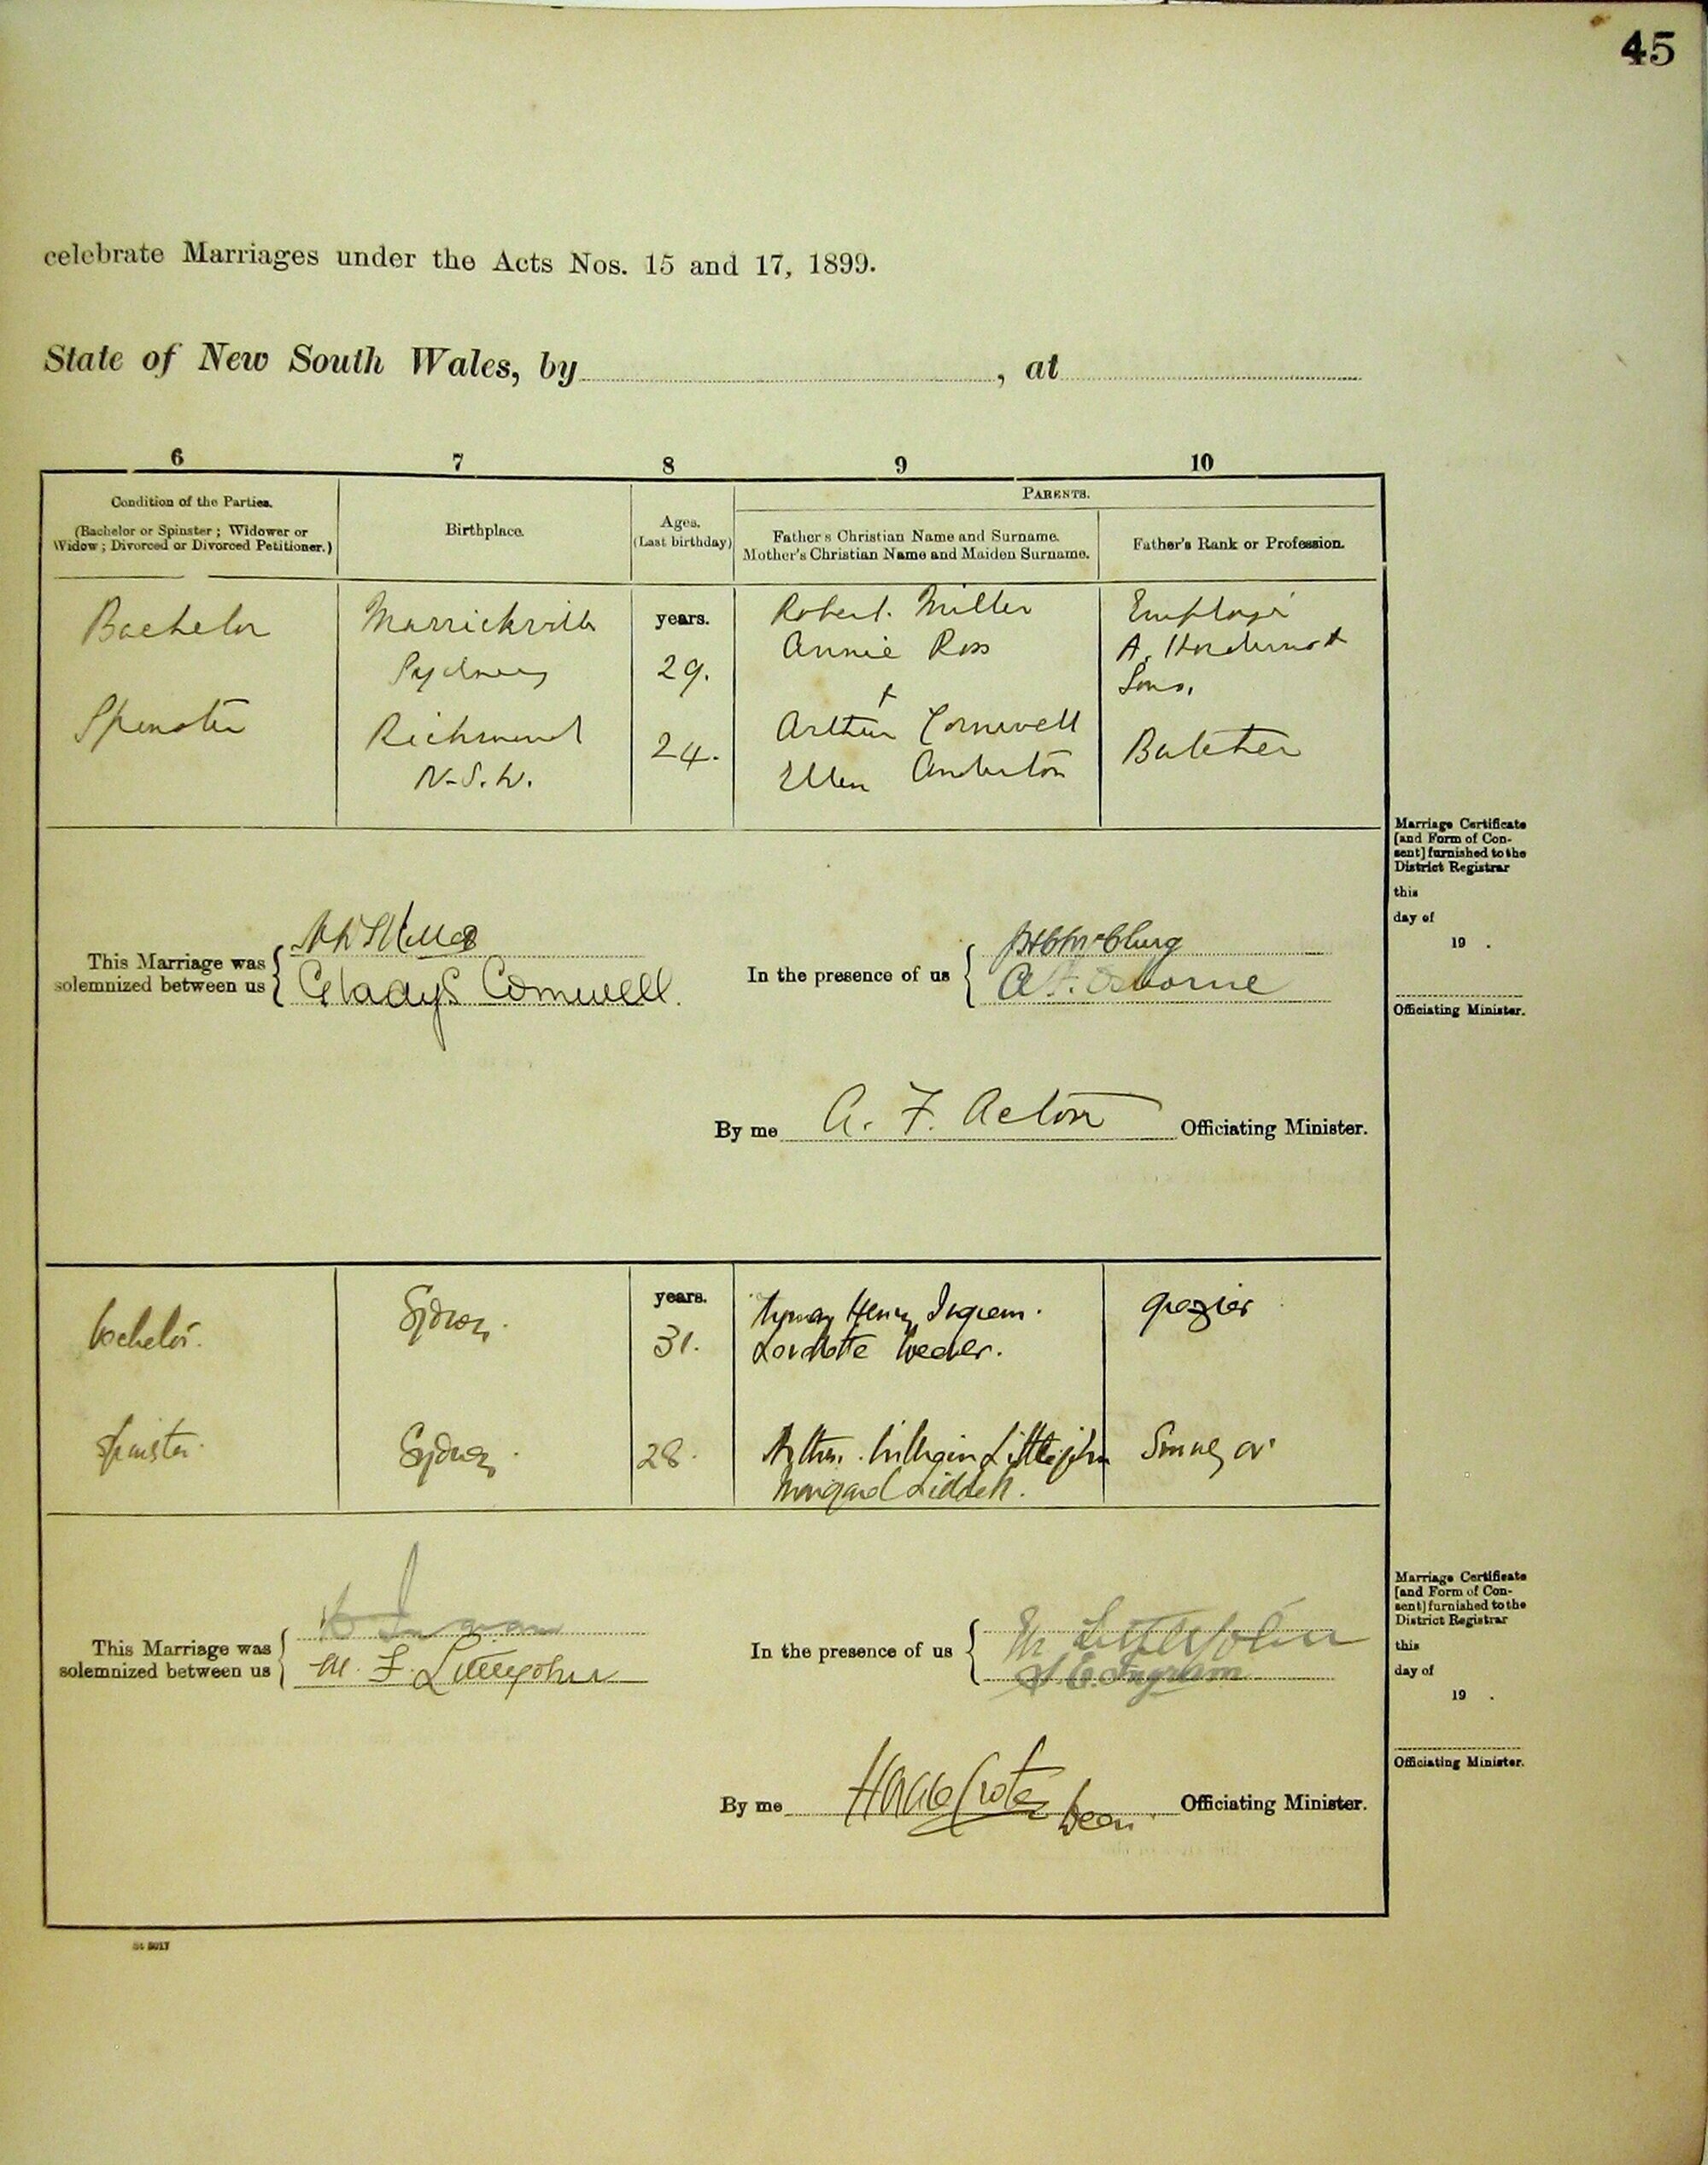 45
celebrate Marriages under the Acts Nos. 15 and 17, 1899.
State of New South Wales, by , at
6 7 8 9 10
Condition of the Parties.
(Bachelor or Spinster; Widower or
Widow; Divorced or Divorced Petitioner.)
Birthplace.
Ages.
(Last birthday)
PARENTS.
Father's Christian Name and Surname.
Mother's Christian Name and Maiden Surname.
Father's Rank or Profession.
Bachelor
Marrickville
Sydney
years.
29.
Robert. Miller
Annie Ross
Employé
A. Hordern &
Sons.
Spinster
Richmond
N.S.W.
24.
Arthur Cornwell
Ellen Anderton
Butcher
This Marriage was
solemnized between us
Miller
Gladys Cornwell.
In the presence of us
McClurg
A. Osborne
By me A. F. Acton Officiating Minister.
Marriage Certificate
[and Form of Con-
sent] furnished to the
District Registrar
this
day of
19 .
Officiating Minister.
bachelor.
Sydney.
years.
31.
Henry Ingram.
grazier
spinster.
Sydney.
28.
Arthur. William Littlejohn
Margaret Liddell.
This Marriage was
solemnized between us
Ingram
M. F. Littlejohn
In the presence of us
Littlejohn
Ingram
By me Horace Crotty Dean Officiating Minister.
Marriage Certificate
[and Form of Con-
sent] furnished to the
District Registrar
this
day of
19 .
Officiating Minister.
St 5017